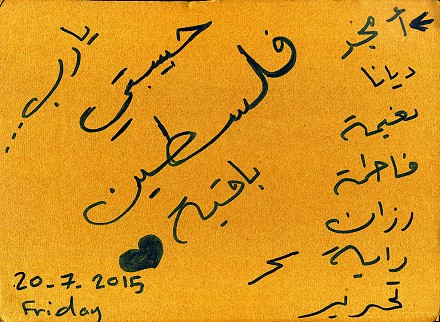 أمجد
ديانا
نعيمة
فاطمة
رزان
راية
سحر
تحرير
يا رب...
حبيبتي
فلسطين
باقية
20-7-2015
Friday